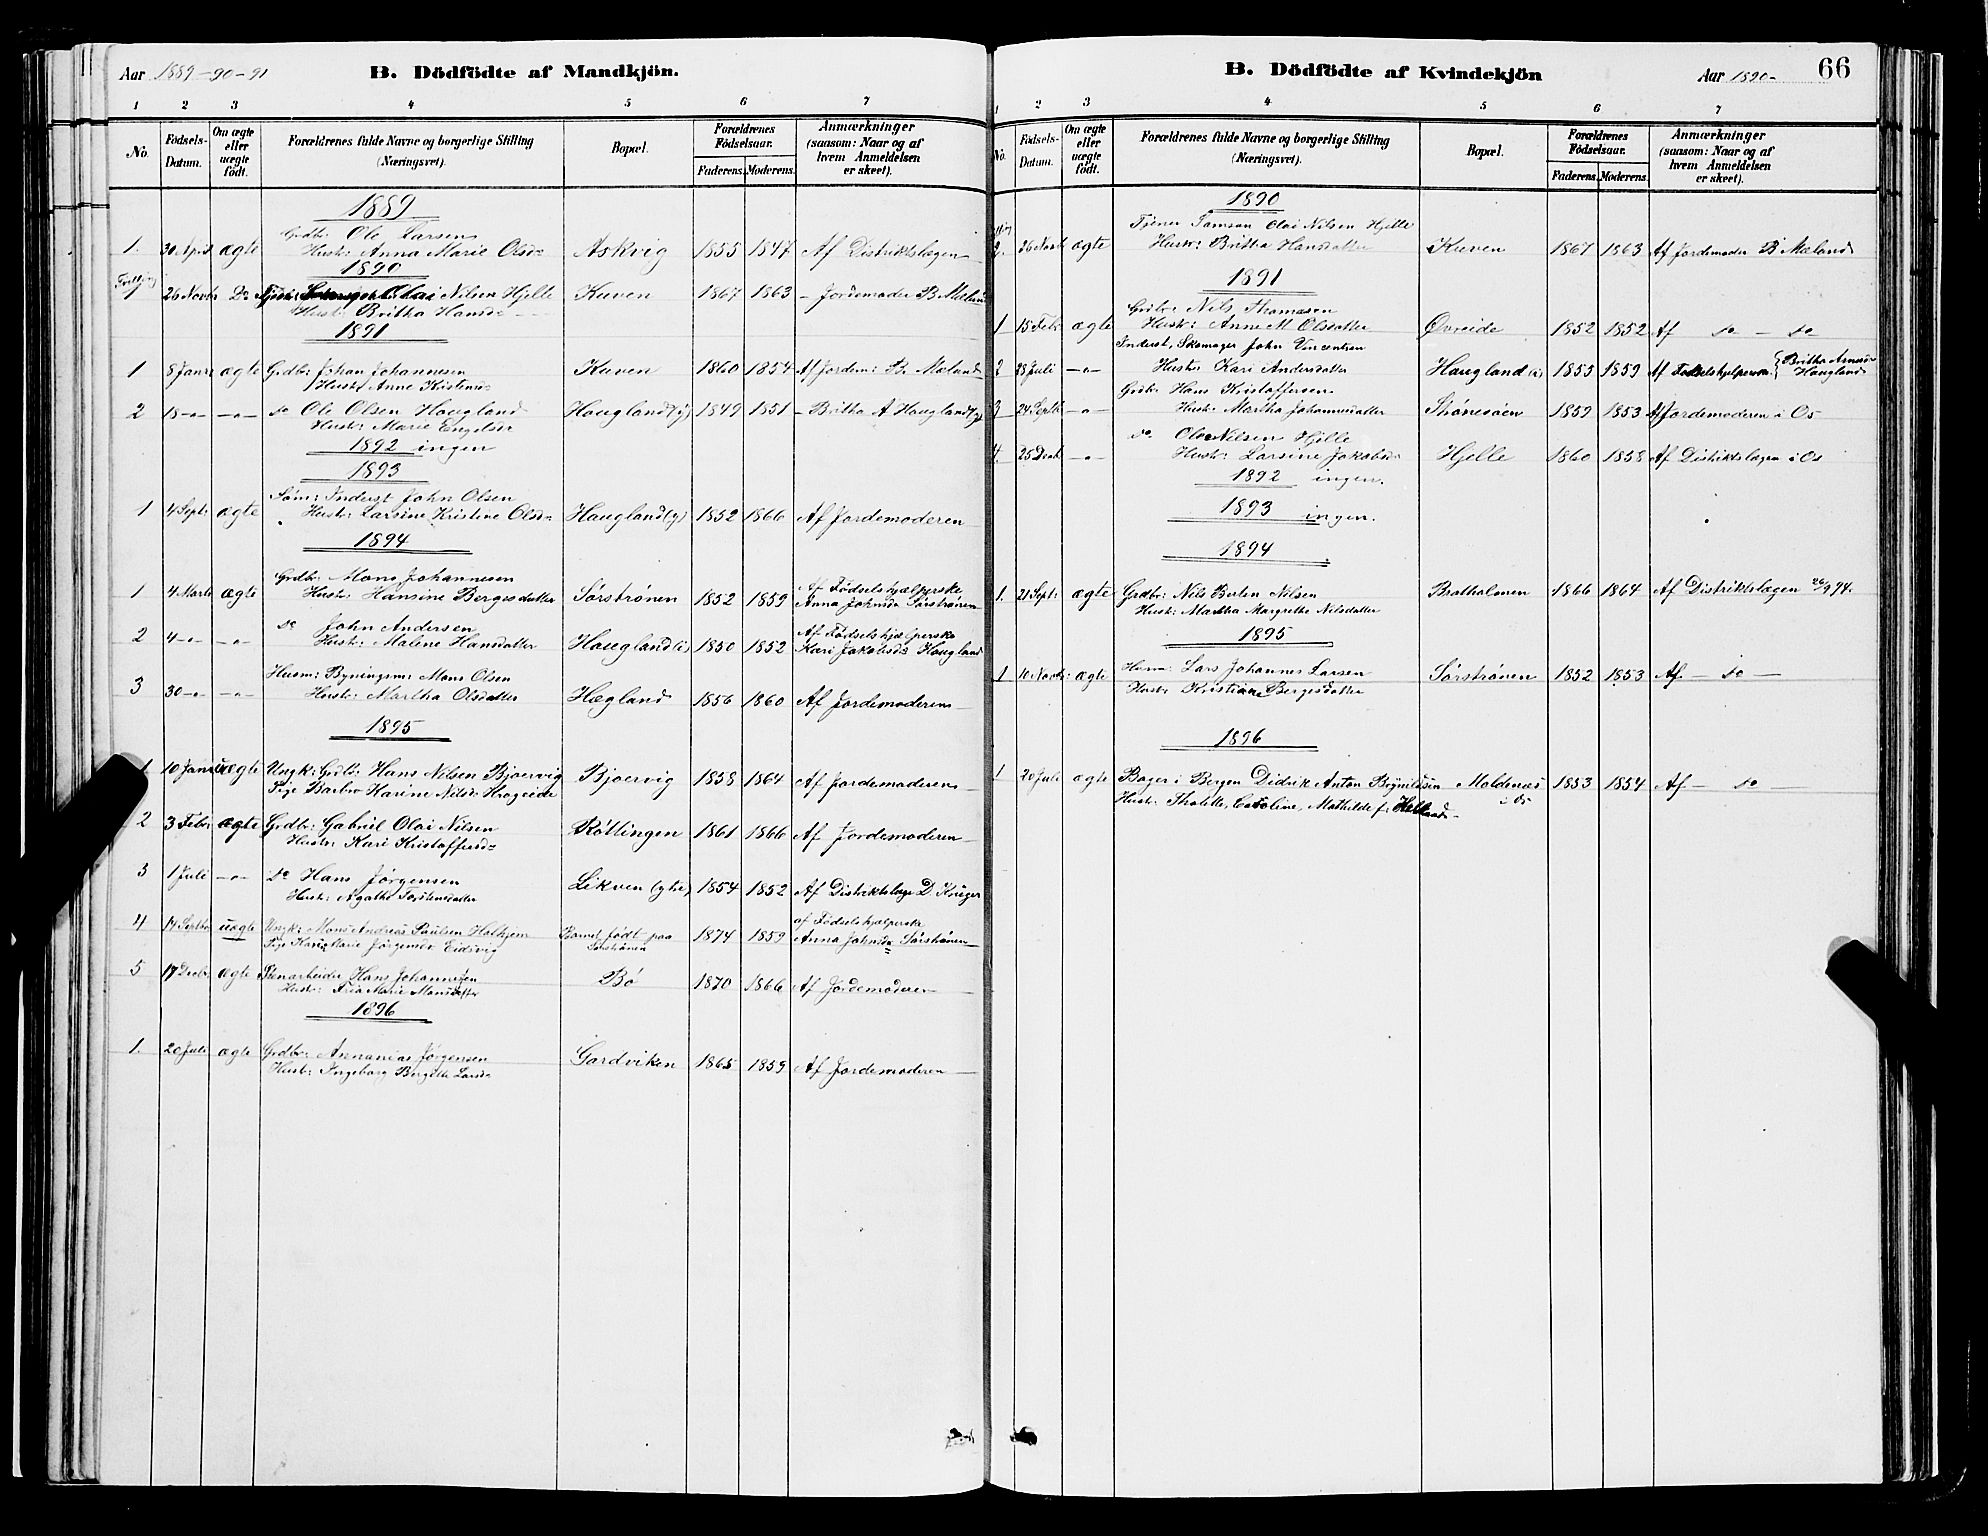 Aar 1889-90-91
B. Dödfödte af Mandkjön.
1 2 3 4 5 6 7
No.
Födsels-Datum.
Om ægte eller uægte födt.
Forældrenes fulde Navne og borgerlige Stilling (Næringsvei).
Bopæl.
Forældrenes Födselsaar.
Faderens. Moderens.
Anmærkninger (saasom: Naar og af hvem Anmeldelsen er skeet).
1889
Grdbr. Ole Larsen
1. 30 April ægte Hustr: Anna Marie Olsd= Askvig 1855 1847 Af Distriktslægen
1890
26 Novbr Do Olai Nilsen Hjelle Kuven 1867 1863 - Jordemoder B. Mæland
Hustr: Britha Hansd=
1891
1 8 Janr ægte Grdbr: Johan Johannesen Kuven 1860 1854 Af Jordem: B. Mæland
Hustr: Anne Kristensd
2 18 -"- -"- do Ole Olsen Haugland Haugland (y) 1849 1851 - Britha A. Haugland (y)
Hustr: Marie Engelsdr
1892 ingen
1893
Söm: Inderst John Olsen
1 4 Septr ægte Hustr: Larsine Kristine Olsd= Haugland (y) 1852 1866 Af Jordemoderen
1894
Grdbr: Mons Johannesen
1 4 Marts ægte Hustr: Hansine Bergesdatter Sørstrønen 1852 1859 Af Födselshjælperske
Anna Johnsd Sørstrønen
do John Andersen
2 4 -"- -"- Hustr: Malene Hansdatter Haugland (i) 1850 1852 Af Födselshjælperske
Kari Jakobsd= Haugland
Husm: Bygningsm: Mons Olsen
3 30 -"- -"- Hustr: Martha Olsdatter Hægland 1856 1860 Af Jordemoderen
1895
1 10 Janr uægte Ungk: Grdbr: Hans Nilsen Bjoervig Bjoervig 1858 1864 Af Jordemoderen
Pige Barbro Karine Nilsd=
2 3 Febr ægte Grdbr: Gabriel Olai Nilsen Røttingen 1861 1866 Af Jordemoderen
Hustr: Kari Kristoffersd=
3 1 Juli -"- do Hans Jørgensen Likven (ytre) 1854 1852 Af Distriktslæge D. Krüger
Hustr: Agathe Torstensdatter
4 14 Septbr uægte Ungk: Mons Andreas Paulsen Halhjem Barnet födt paa 1874 1859 af Födselshjælperske
Pige Karie Marie Jørgensd= Eidsvig Sørstrønen Anna Johnsd= Sørstrønen
5 17 Decbr ægte Stenarbeider Hans Johannesen Bø 1870 1866 Af Jordemoderen
Hustr: Marie Monsdatter
1896
1. 20 Juli ægte Grdbr: Annanias Jørgensen Gardviken 1865 1859 Af Jordemoderen
Hustr: Ingeborg Bergitte Larsd=
B. Dödfödte af Kvindekjön
Aar 1890-
66
1 2 3 4 5 6 7
No.
Födsels-Datum.
Om ægte eller uægte födt.
Forældrenes fulde Navne og borgerlige Stilling (Næringsvei).
Bopæl.
Forældrenes Födselsaar.
Faderens. Moderens.
Anmærkninger (saasom: Naar og af hvem Anmeldelsen er skeet).
1890
Tjener Tømson Olai Nilsen Hjelle
2. 26 Novbr ægte Hustr: Britha Hansdatter Kuven 1867 1863 Af Jordemoder B. Mæland
1891
Grdbr: Nils Thomasen
1 15 Febr ægte Hustr: Anne M. Olsdatter Øvreide 1852 1852 Af do - do
Inderst, Skomager John Vincentsen
2 28 Juli -"- Hustr: Kari Andersdatter Haugland (i) 1855 1859 Af Födselshjelperske Britha Arnesd= Haugland
Grdbr: Hans Kristoffersen
3 24 Septbr -"- Hustr: Martha Johannesdatter Skønesøen 1859 1853 Af Jordemoderen i Os
do. Ole Nilsen Hjelle
4. 25 Decbr -"- Hustr: Larsine Jakobsd= Hjelle 1860 1858 Af Distriktslægen i Os
1892 ingen.
1893 ingen.
1894
1. 21 Septr ægte Grdbr: Nils Berten Nilsen Bratholmen 1866 1864 Af Distriktslægen 26/9 94.
Hustr: Martha Margrethe Nilsdatter
1895
1 10 Novbr: ægte Husm: Lars Johannes Larsen Sørstrønen 1852 1853 Af - do -
Hustr: Kristiane Bergesdatter
1896
1 20 Juli ægte Bager i Bergen Didrik Anton Moldenæs 1853 1854 Af - do -
Hustr: Caroline Mathilde f. Helland i Os